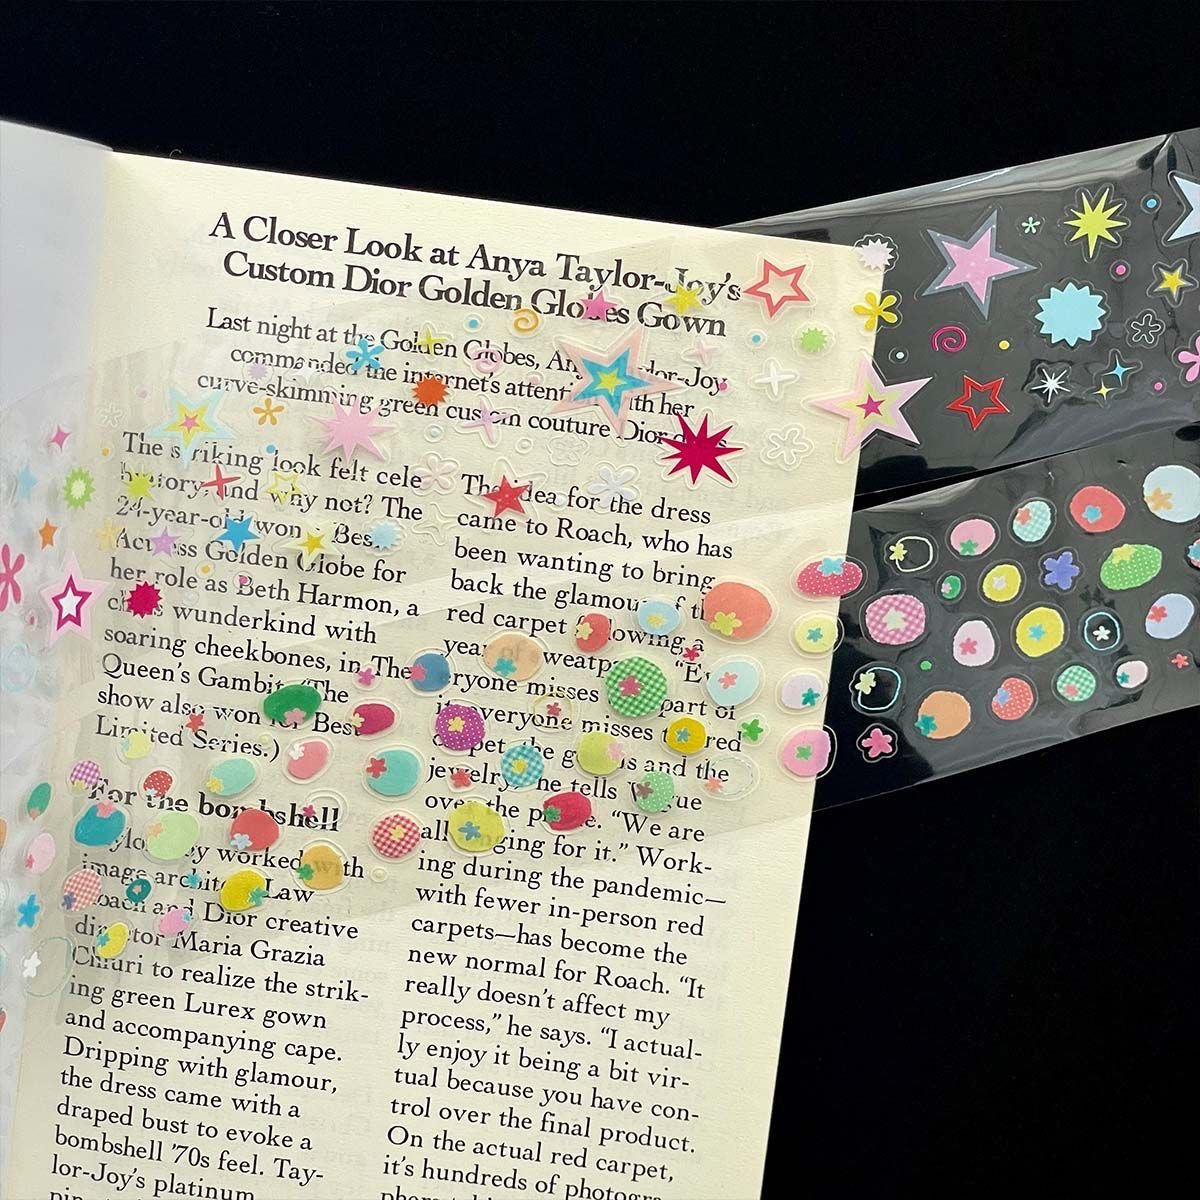 A Closer Look at Anya Taylor-Joy's
Custom Dior Golden Globes Gown
Last night at the Golden Globes, Anya Taylor-Joy
commanded the internet's attention with her
curve-skimming green custom couture Dior
The striking look felt cele
history, and why not? The
24-year-old won Best
Actress Golden Globe for
her role as Beth Harmon, a
chess wunderkind with
soaring cheekbones, in The
Queen's Gambit. (The
show also won for Best
Limited Series.)
For the bombshell
Taylor-Joy worked with
image architect Law
Roach and Dior creative
director Maria Grazia
Chiuri to realize the strik-
ing green Lurex gown
and accompanying cape.
Dripping with glamour,
the dress came with a
draped bust to evoke a
bombshell '70s feel. Tay-
lor-Joy's platinum
The idea for the dress
came to Roach, who has
been wanting to bring
back the glamour of the
red carpet following a
year of sweatpants. "Ev-
eryone misses part of
it, everyone misses the red
carpet, the gowns and the
jewelry," he tells Vogue
over the phone. "We are
all longing for it." Work-
ing during the pandemic—
with fewer in-person red
carpets—has become the
new normal for Roach. "It
really doesn't affect my
process," he says. "I actual-
ly enjoy it being a bit vir-
tual because you have con-
trol over the final product.
On the actual red carpet,
it's hundreds of photogra-